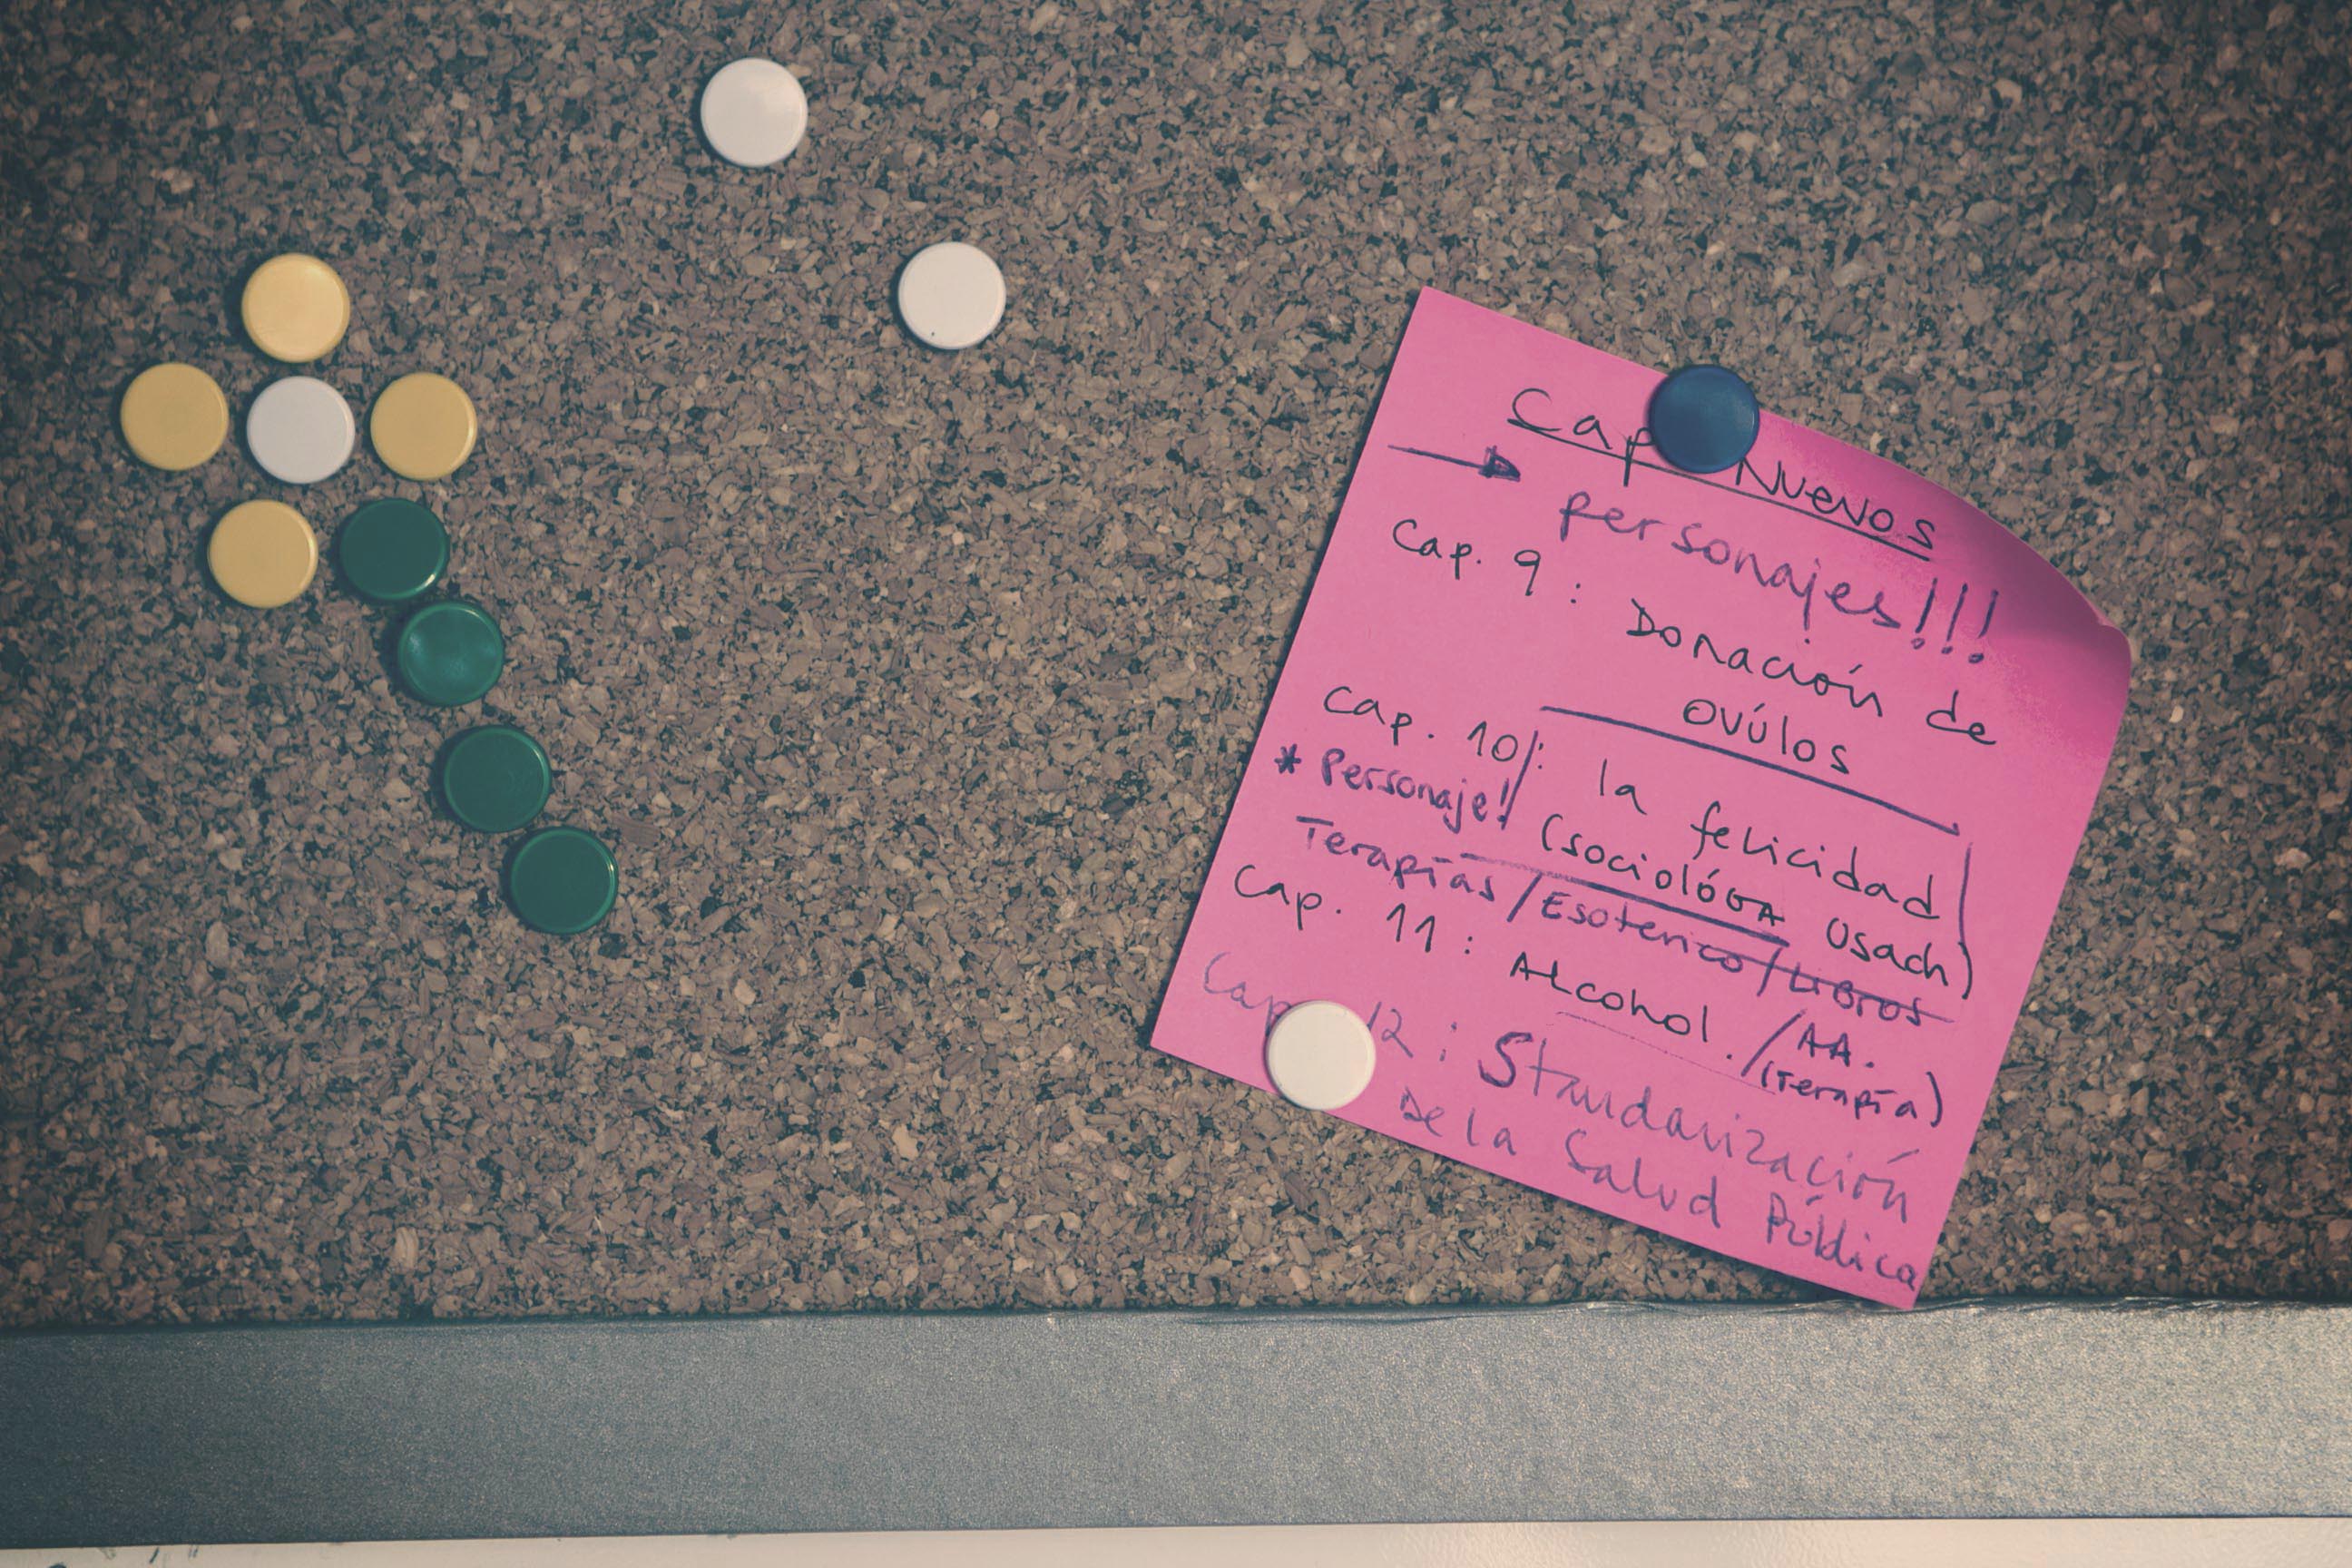 Cap Nuevos
→ personajes!!!
Cap. 9 : Donación de
ovúlos
Cap. 10 : la felicidad
* Personaje! (sociolóGA Usach)
Terapías / Esoterico / Libros
Cap. 11 : Alcohol. / AA.
(Terapía)
Cap 12 : Standarización
De la Salud Pública